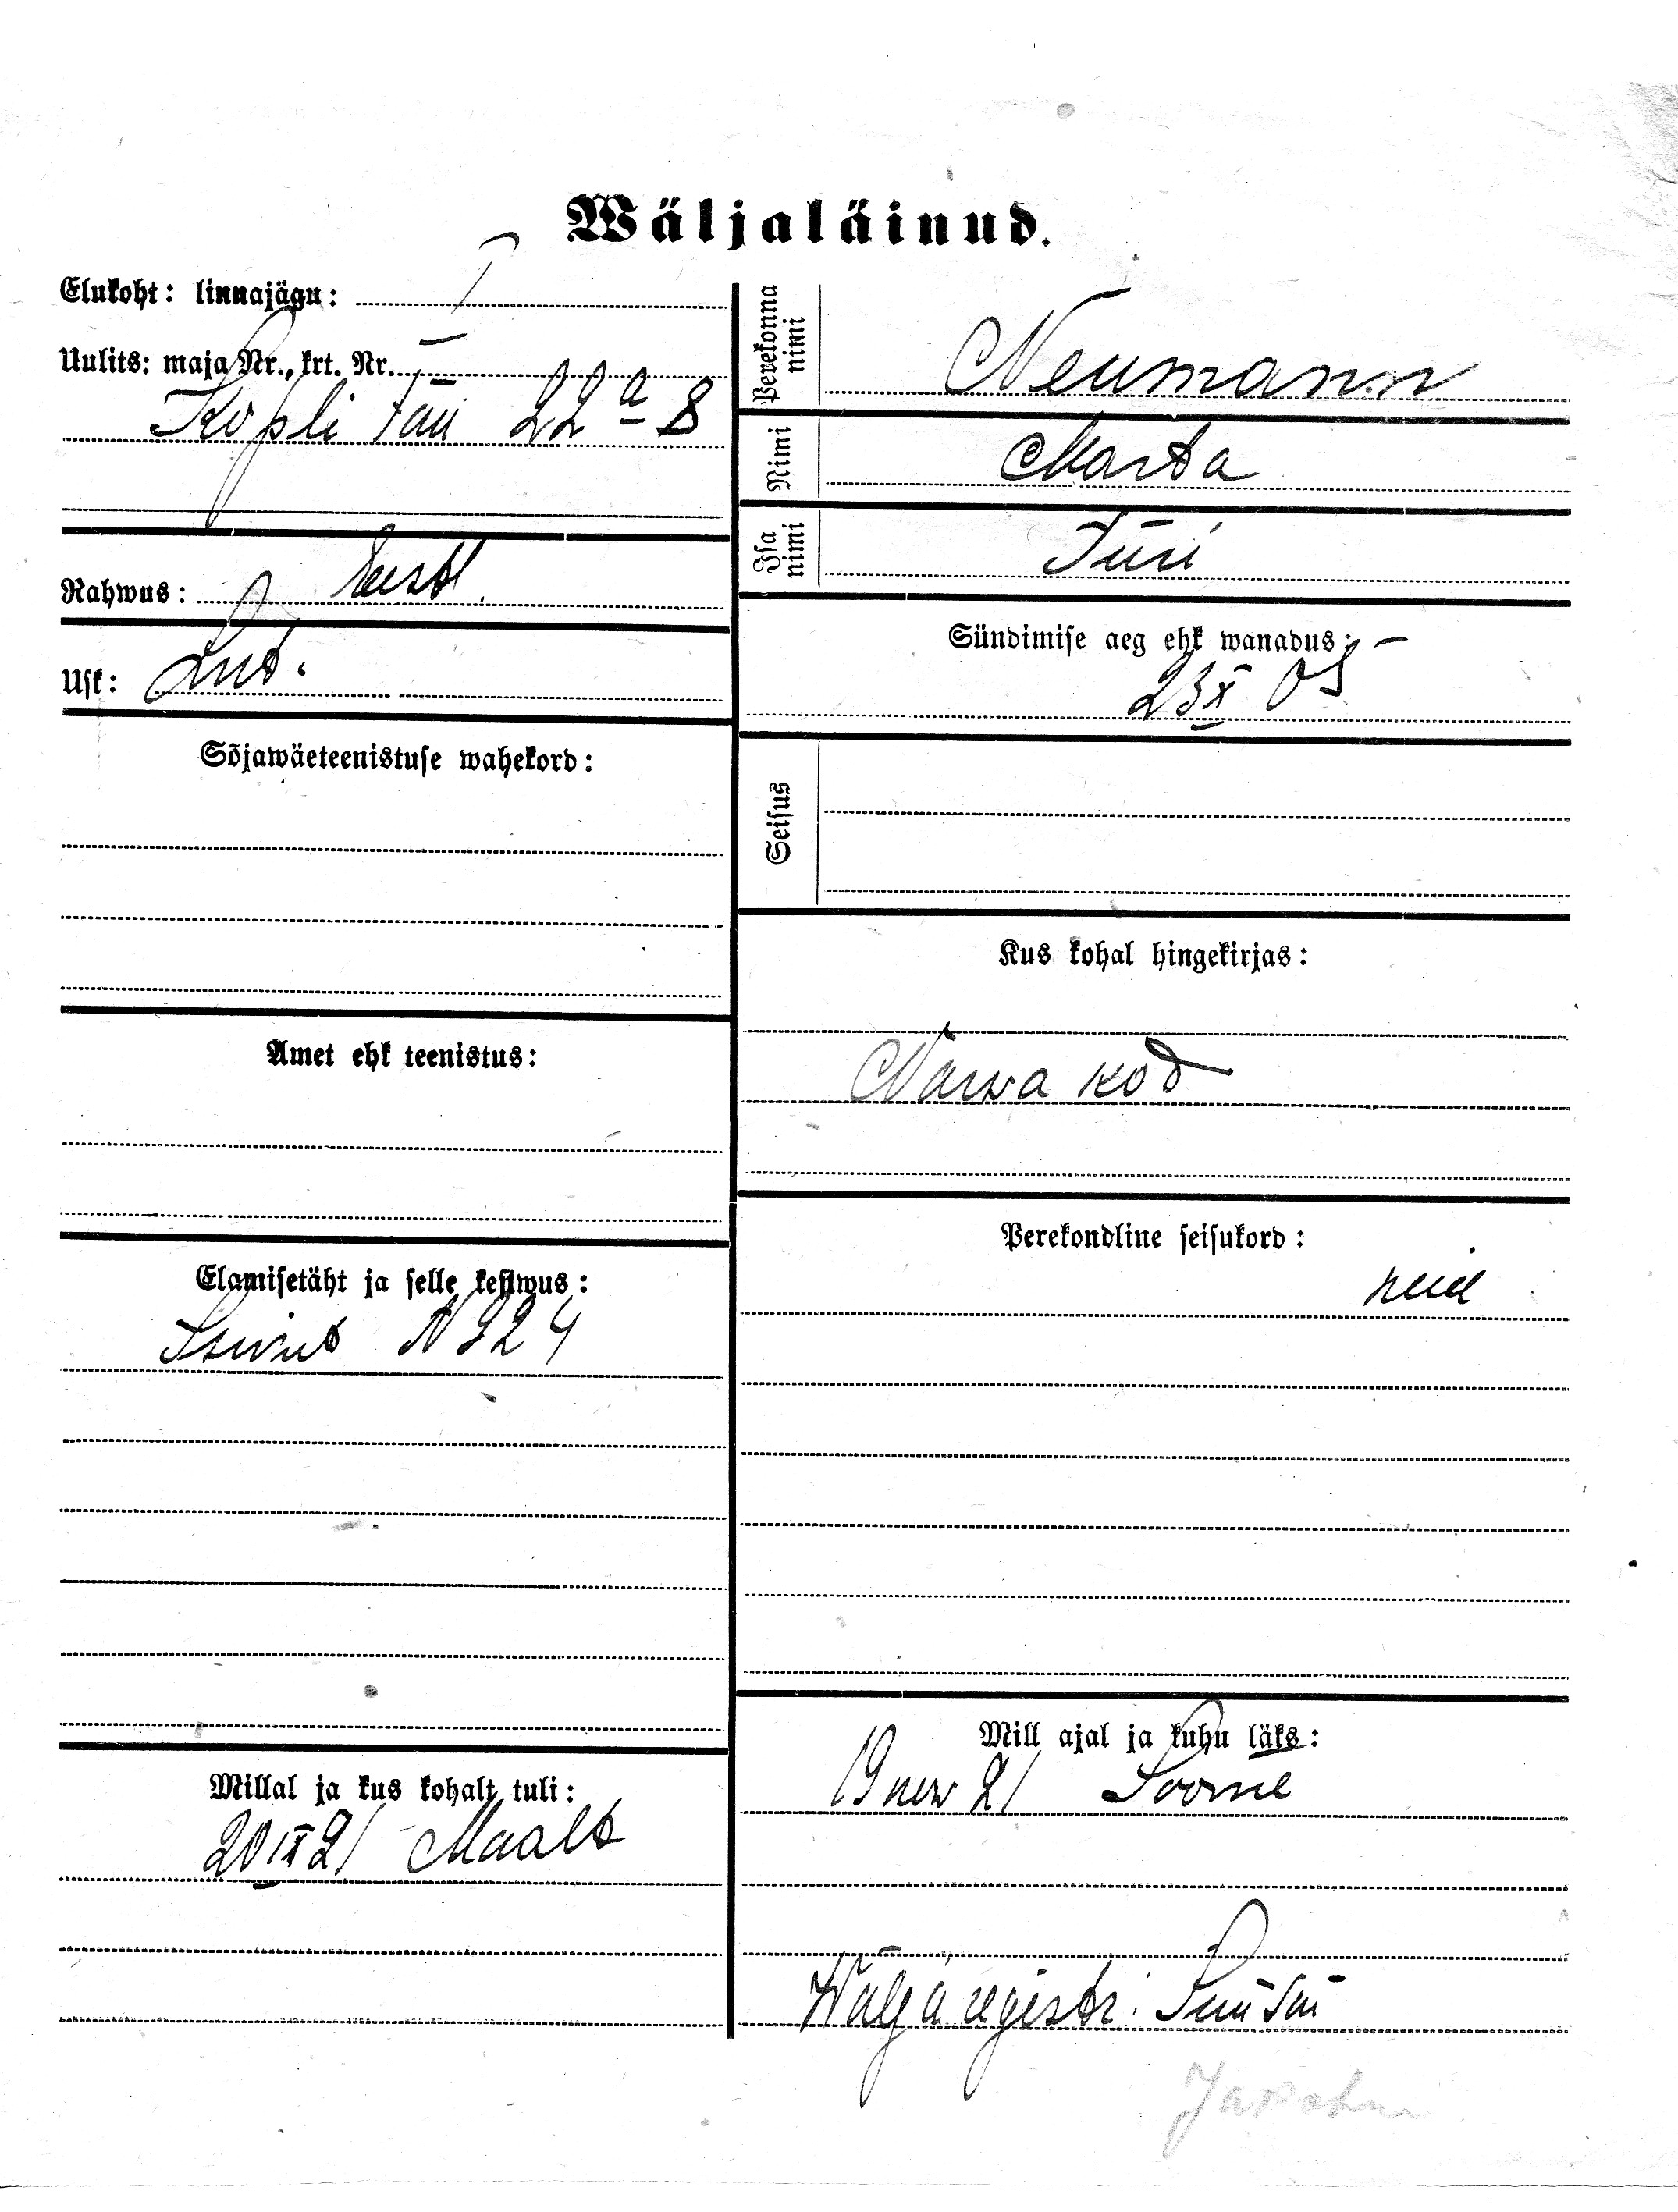 Wäljaläinud.
Elukoht: linnajägu: I
Uulits: maja Nr., krt. Nr.
Kopli tän 22ª-8
Rahwus: Eestl.
Usk: Lut.
Sõjawäeteenistuse wahekord:
Amet ehk teenistus:
Elamisetäht ja selle kestwus:
N 924
Millal ja kus kohalt tuli:
20 IX 21 Maalt
Perekonna nimi Neumann
Nimi Marta
Isa nimi Jüri
Sündimise aeg ehk wanadus:
23 X 05
Seisus
Kus kohal hingekirjas:
Narva kod
Perekondline seisukord:
neid
Mill ajal ja kuhu läks:
19 now 21 Soome
Wälja registr.